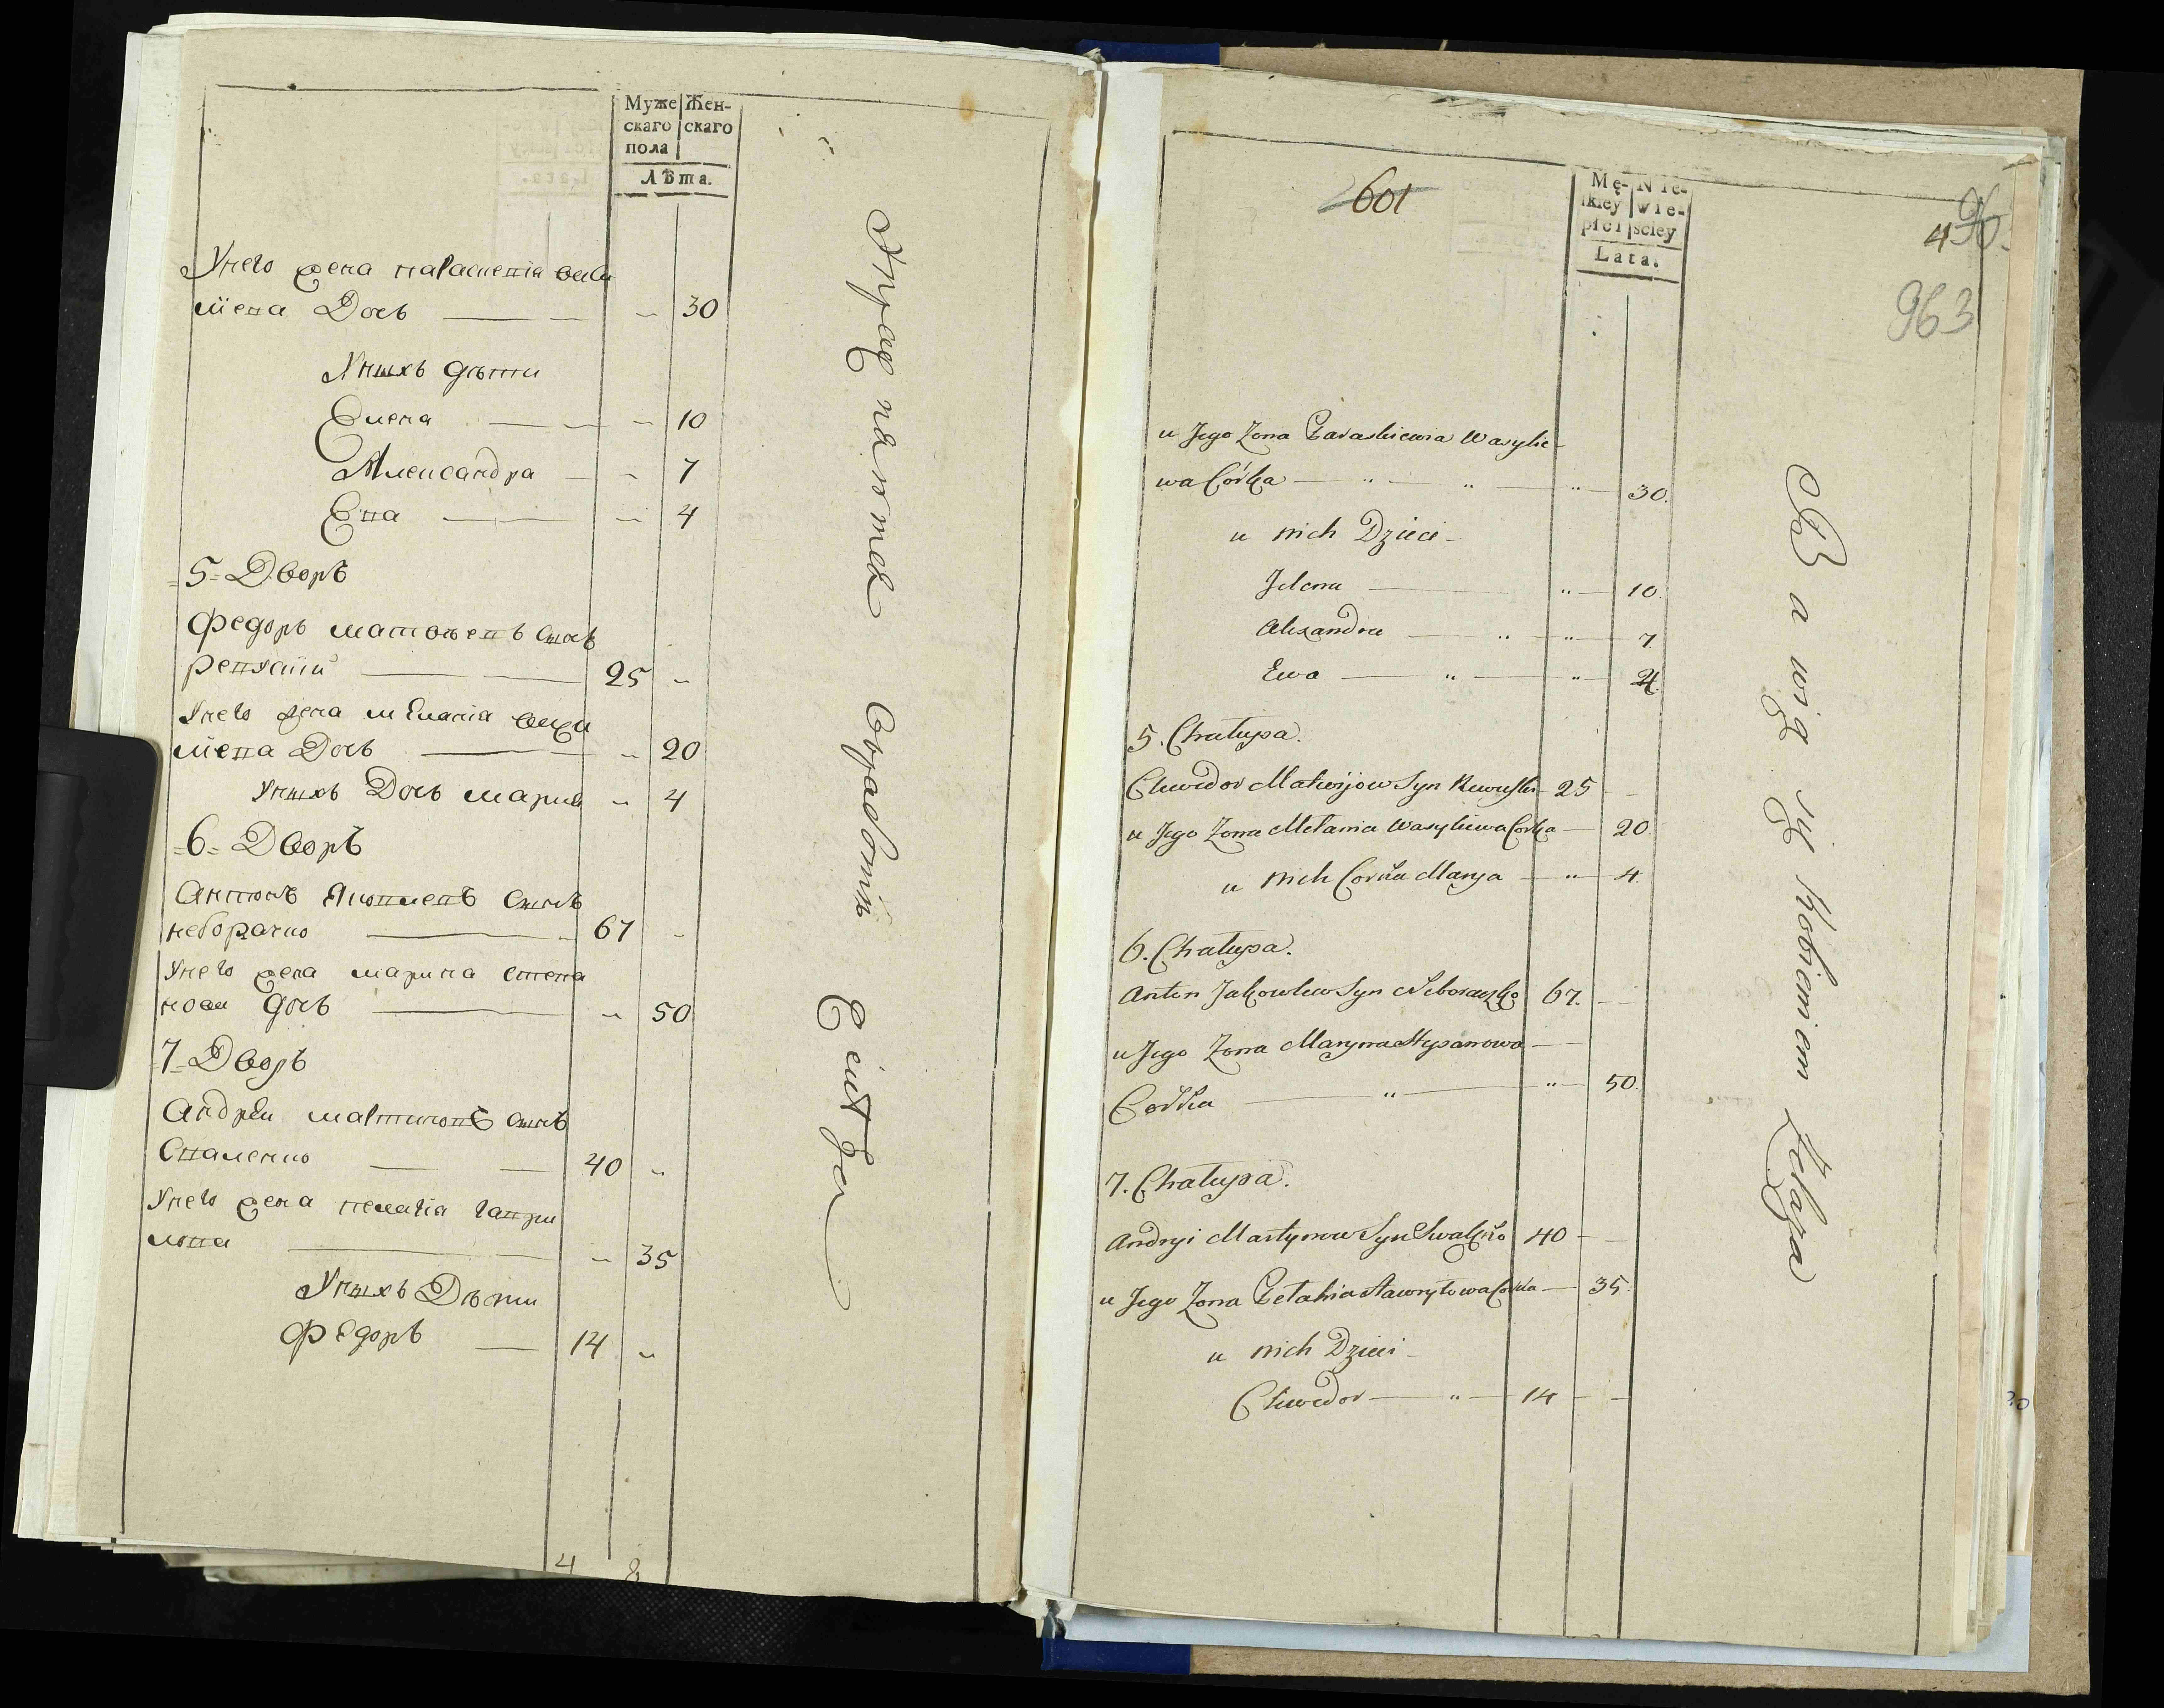 Муже Жен-
скаго скаго
пола
Лѣта.
Унего жена параскевія васи
лiева Дочь 30
Унихъ дѣти
Елена 10
Александра 7
Ева 4
5 Дворъ
Федоръ матвѣевъ Сынъ
25
Унего жена мЕланія васи
лiева Дочь 20
Унихъ Дочь мария 4
6 Дворъ
Антонъ Яковлевъ Сынъ
неборачко 67
Унего жена марина степа
нова дочь 50
7 Дворъ
Андрѣй мартиновъ Сынъ
Сваленко 40
Унего жена пелагія гаври
лова 35
Унихъ Дѣти
Федоръ 14
4 8
601
Mę- Nie-
skiey wie-
płci sciey
Lata.
496.
963
u Jego Zona Paraskiewia Wasylie-
wa Córka 30.
u nich Dzieci
Jelena 10.
Alexandra 7
Ewa 4.
5. Chałupa.
Chwedor Matwijow Syn 25
u Jego Zona Mełania Wasyliewa Corka 20.
u nich Corka Marya 4.
6. Chałupa.
Anton Jakowlew Syn Neboraczko 67.
u Jego Zona Maryna Stypanowa
Corka 50.
7. Chałupa.
Andryi Martynow Syn 40
u Jego Zona Pełahia Hawryłowa Corka 35.
u nich Dzieci
Chwedor 14
Bawią się Robieniem Żelaza